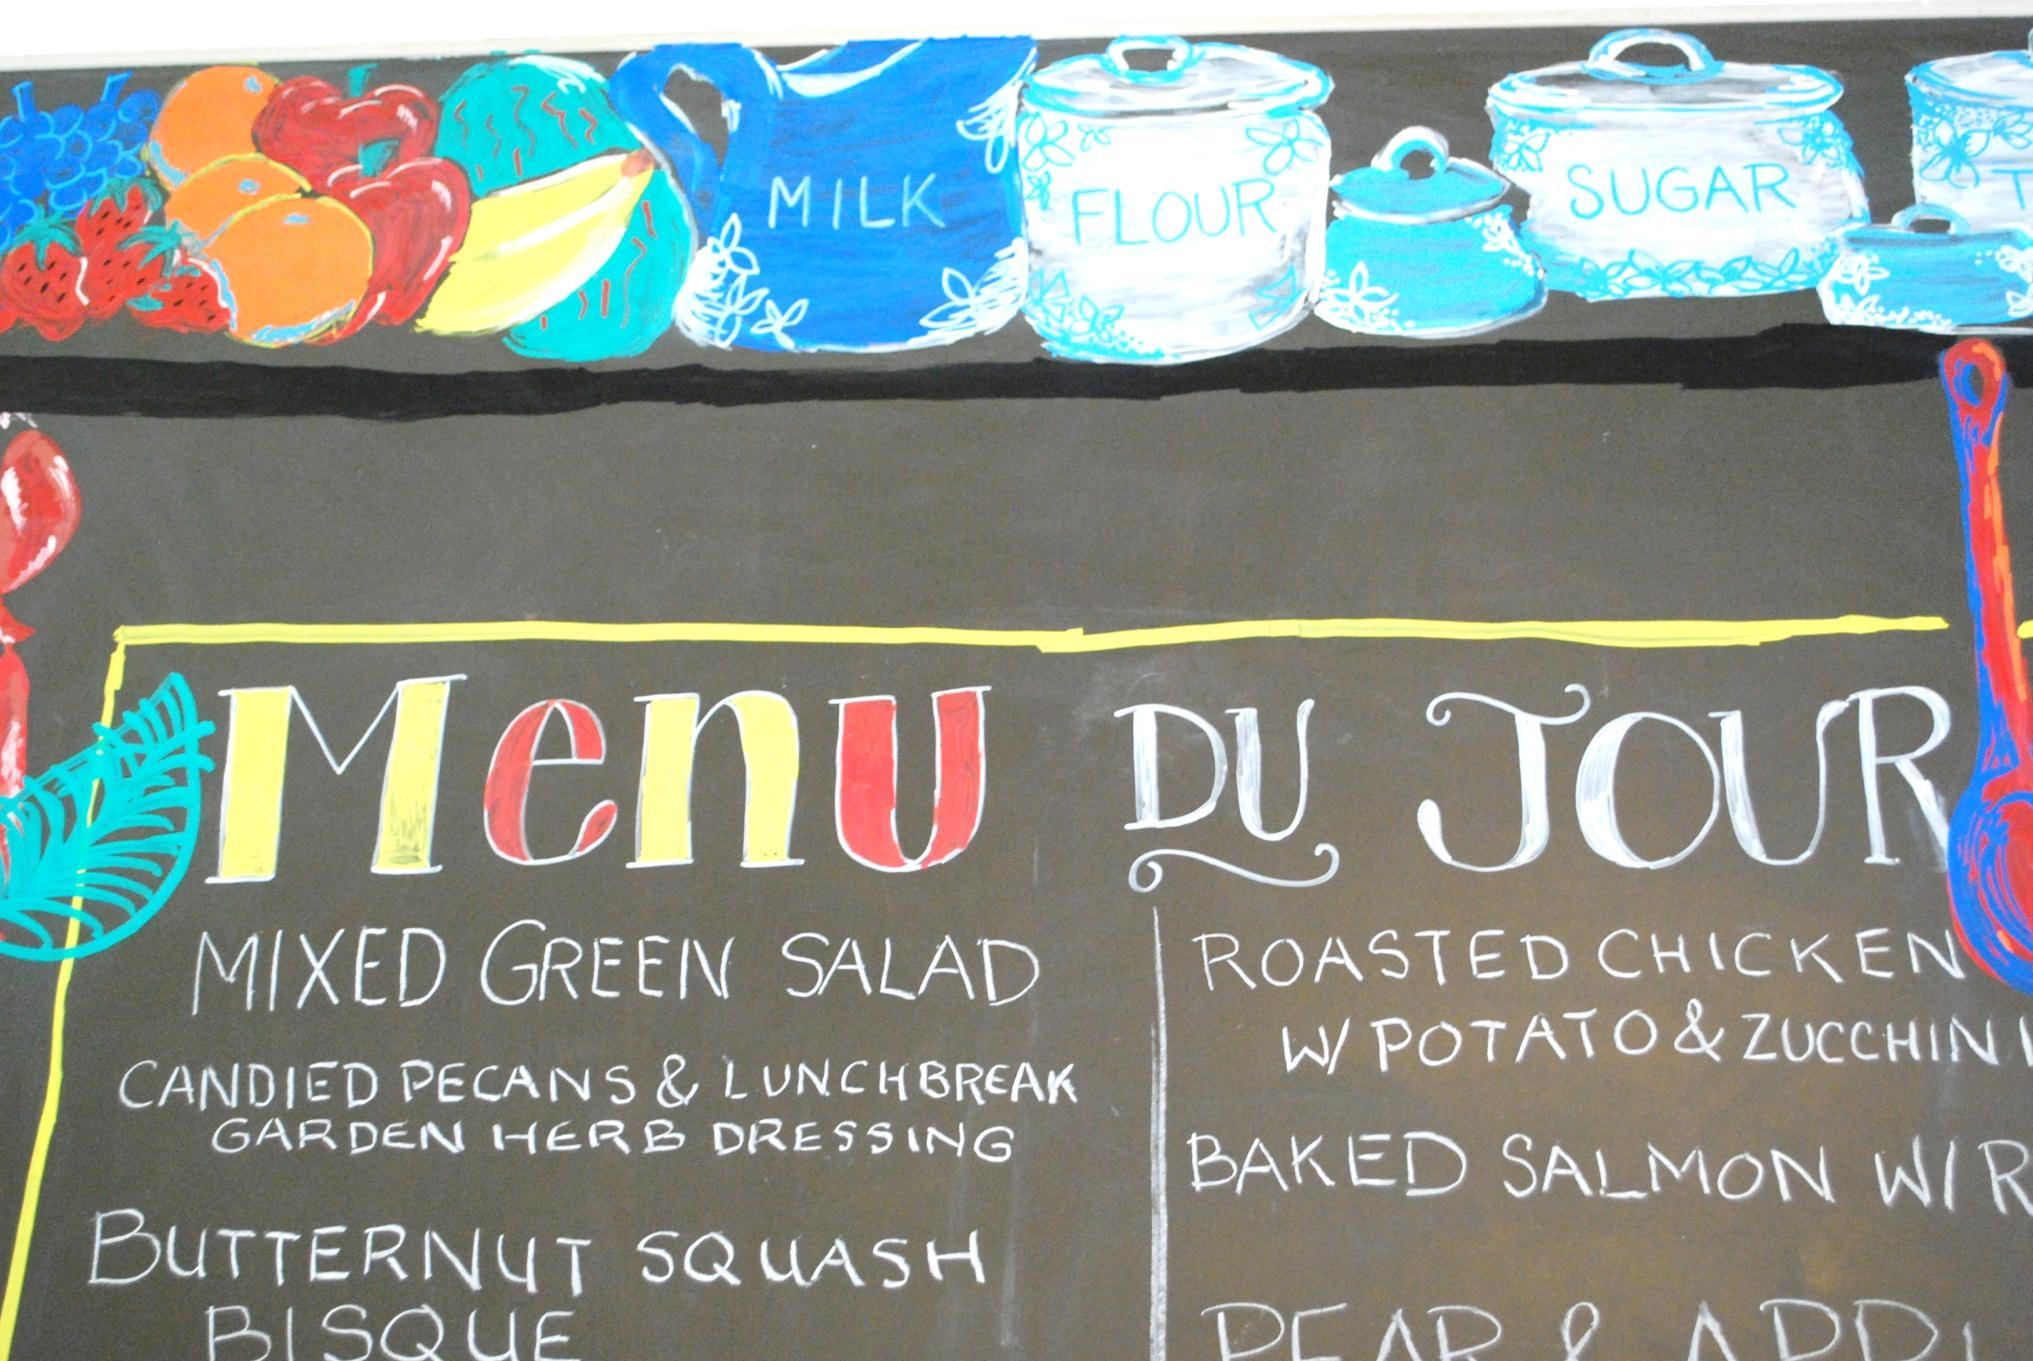 MILK
FLOUR
SUGAR
T
Menu DU JOUR
MIXED GREEN SALAD
CANDIED PECANS & LUNCHBREAK
GARDEN HERB DRESSING
BUTTERNUT SQUASH
BISQUE
ROASTED CHICKEN
W/ POTATO & ZUCCHINI
BAKED SALMON W/ R
PEAR & APPL